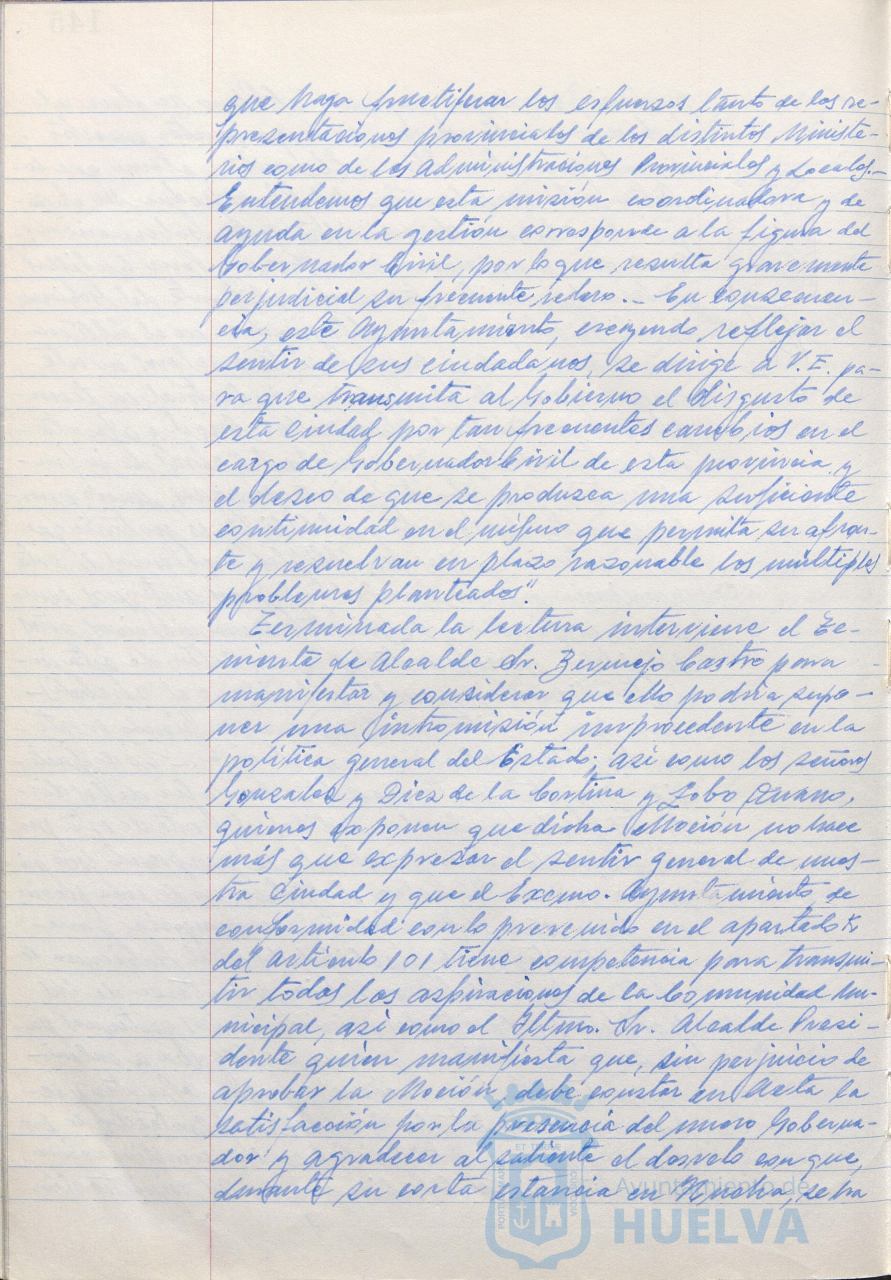 que haga fructiferar los esfuerzos tanto de las re-
presentaciones provinciales de los distintos Ministe-
rios como de las Administraciones Provinciales y Locales.-
Entendemos que esta misión coordinadora y de
ayuda en la gestión corresponde a la figura del
Gobernador Civil, por lo que resulta gravemente
perjudicial su frecuente relevo.- En consecuen-
cia, este Ayuntamiento, creyendo reflejar el
sentir de sus ciudadanos, se dirige a V.E. pa-
ra que transmita al Gobierno el disgusto de
esta Ciudad por tan frecuentes cambios en el
cargo de Gobernador Civil de esta provincia y
el deseo de que se produzca una suficiente
continuidad en el mismo que permita se afron-
te y resuelvan en plazo razonable los múltiples
problemas planteados".
Terminada la lectura interviene el Te-
niente de Alcalde Sr. Bermejo Castro para
manifestar y considerar que ello podría supo-
ner una intromisión improcedente en la
política general del Estado; así como los señores
González y Díez de la Cortina y Lobo
quienes exponen que dicha Moción no hace
más que expresar el sentir general de nues-
tra Ciudad y que el Excmo. Ayuntamiento, de
conformidad con lo prevenido en el apartado k
del artículo 101 tiene competencia para transmi-
tir todas las aspiraciones de la Comunidad Mu-
nicipal, así como el Iltmo. Sr. Alcalde Presi-
dente quien manifiesta que, sin perjuicio de
aprobar la Moción, debe constar en Acta la
satisfacción por la presencia del nuevo Goberna-
dor y agradecer al saliente el desvelo con que,
durante su corta estancia en Huelva, se ha
Ayuntamiento de
HUELVA